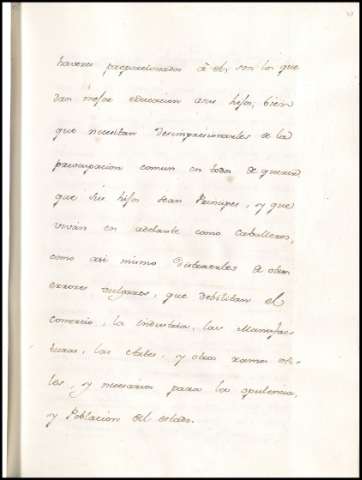 haveres proporcionados à el, son los que
dan mejor educacion a sus hijos, bien
que necesitan desimpresionarles de la
preocupacion comun en todos de querer
que sus hijos sean Principes, y que
vivan en adelante como Caballeros,
como asi mismo disterrarles de otros
errores vulgares, que debilitan el
comercio, la industria, las Manufac
turas, las Artes, y otros ramos uti-
les, y necesarios para la opulencia,
y Poblacion del estado.